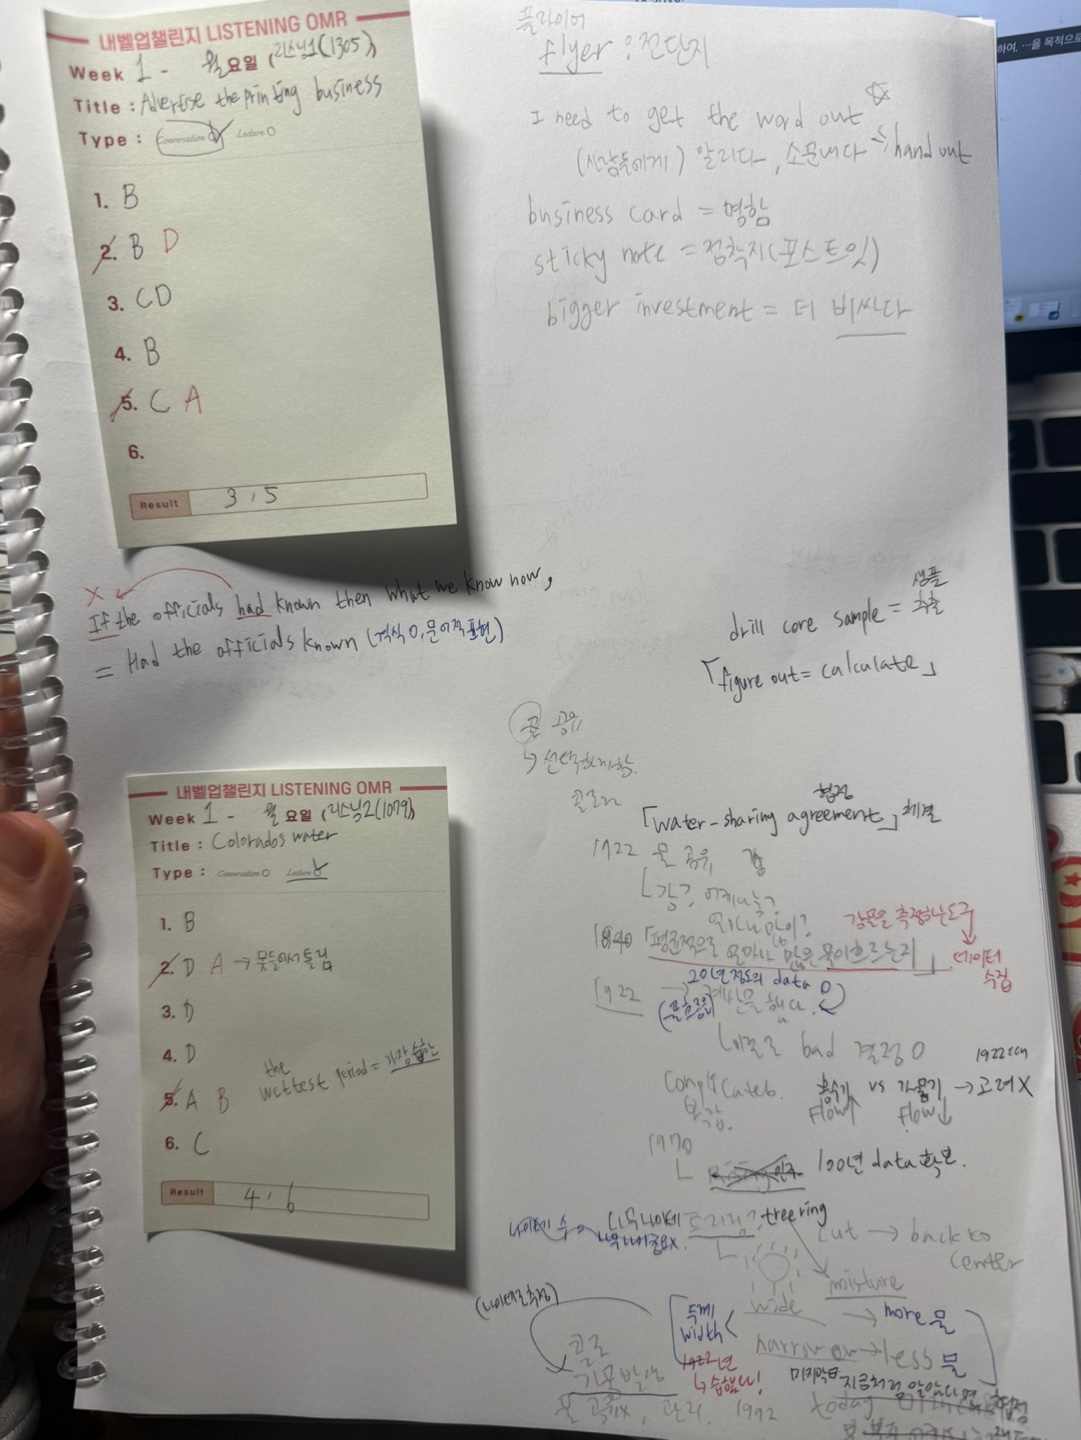 내벨업챌린지 LISTENING OMR
Week 1 - 월요일 (리스닝1(1305))
Title : Advertise the printing business
Type : Conversation Lecture
1. B
2. B D
3. CD
4. B
5. C A
6.
Result 3 / 5
플라이어
flyer : 전단지
I need to get the word out ☆
(사람들에게) 알리다, 소문내다 → hand out
business card = 명함
sticky note = 접착지(포스트잇)
bigger investment = 더 비싸다
X
If the officials had known then what we know now,
= Had the officials known (격식 O, 문어적표현)
샘플
drill core sample = 추출
「figure out = calculate」
물 공유
↳ 선택해야함.
내벨업챌린지 LISTENING OMR
Week 1 - 월요일 (리스닝2(1079))
Title : Colorados water
Type : Conversation Lecture
1. B
2. D A → 못들어서 틀림
3. D
4. D
the wettest period = 가장 습한
5. A B
6. C
Result 4 / 6
협정
「water-sharing agreement」 체결
1922 물 공유 강
얼마나 많이?
강물을 측정하는도구
데이터 수집
1890 「평균적으로 얼마나 많은 물이흐르는지」
20년정도의 data O
1922 → 계산을 했다.
(물흐름의)
bad 결정 O
1922
Complicated. 홍수기 vs 가뭄기 → 고려X
복잡. Flow↑ Flow↓
1970
100년 data 확보.
나이테 수 나무나이테 트리링? tree ring
나무나이중요X.
cut → back to center
mixture
(나이테로측정)
두께 width
wide → more 물
narrow → less 물
1922년
↳ 습했다!
콜로
가뭄 발생
물 공유X, 관리. 1992
지금처럼 알았다면 협정
today